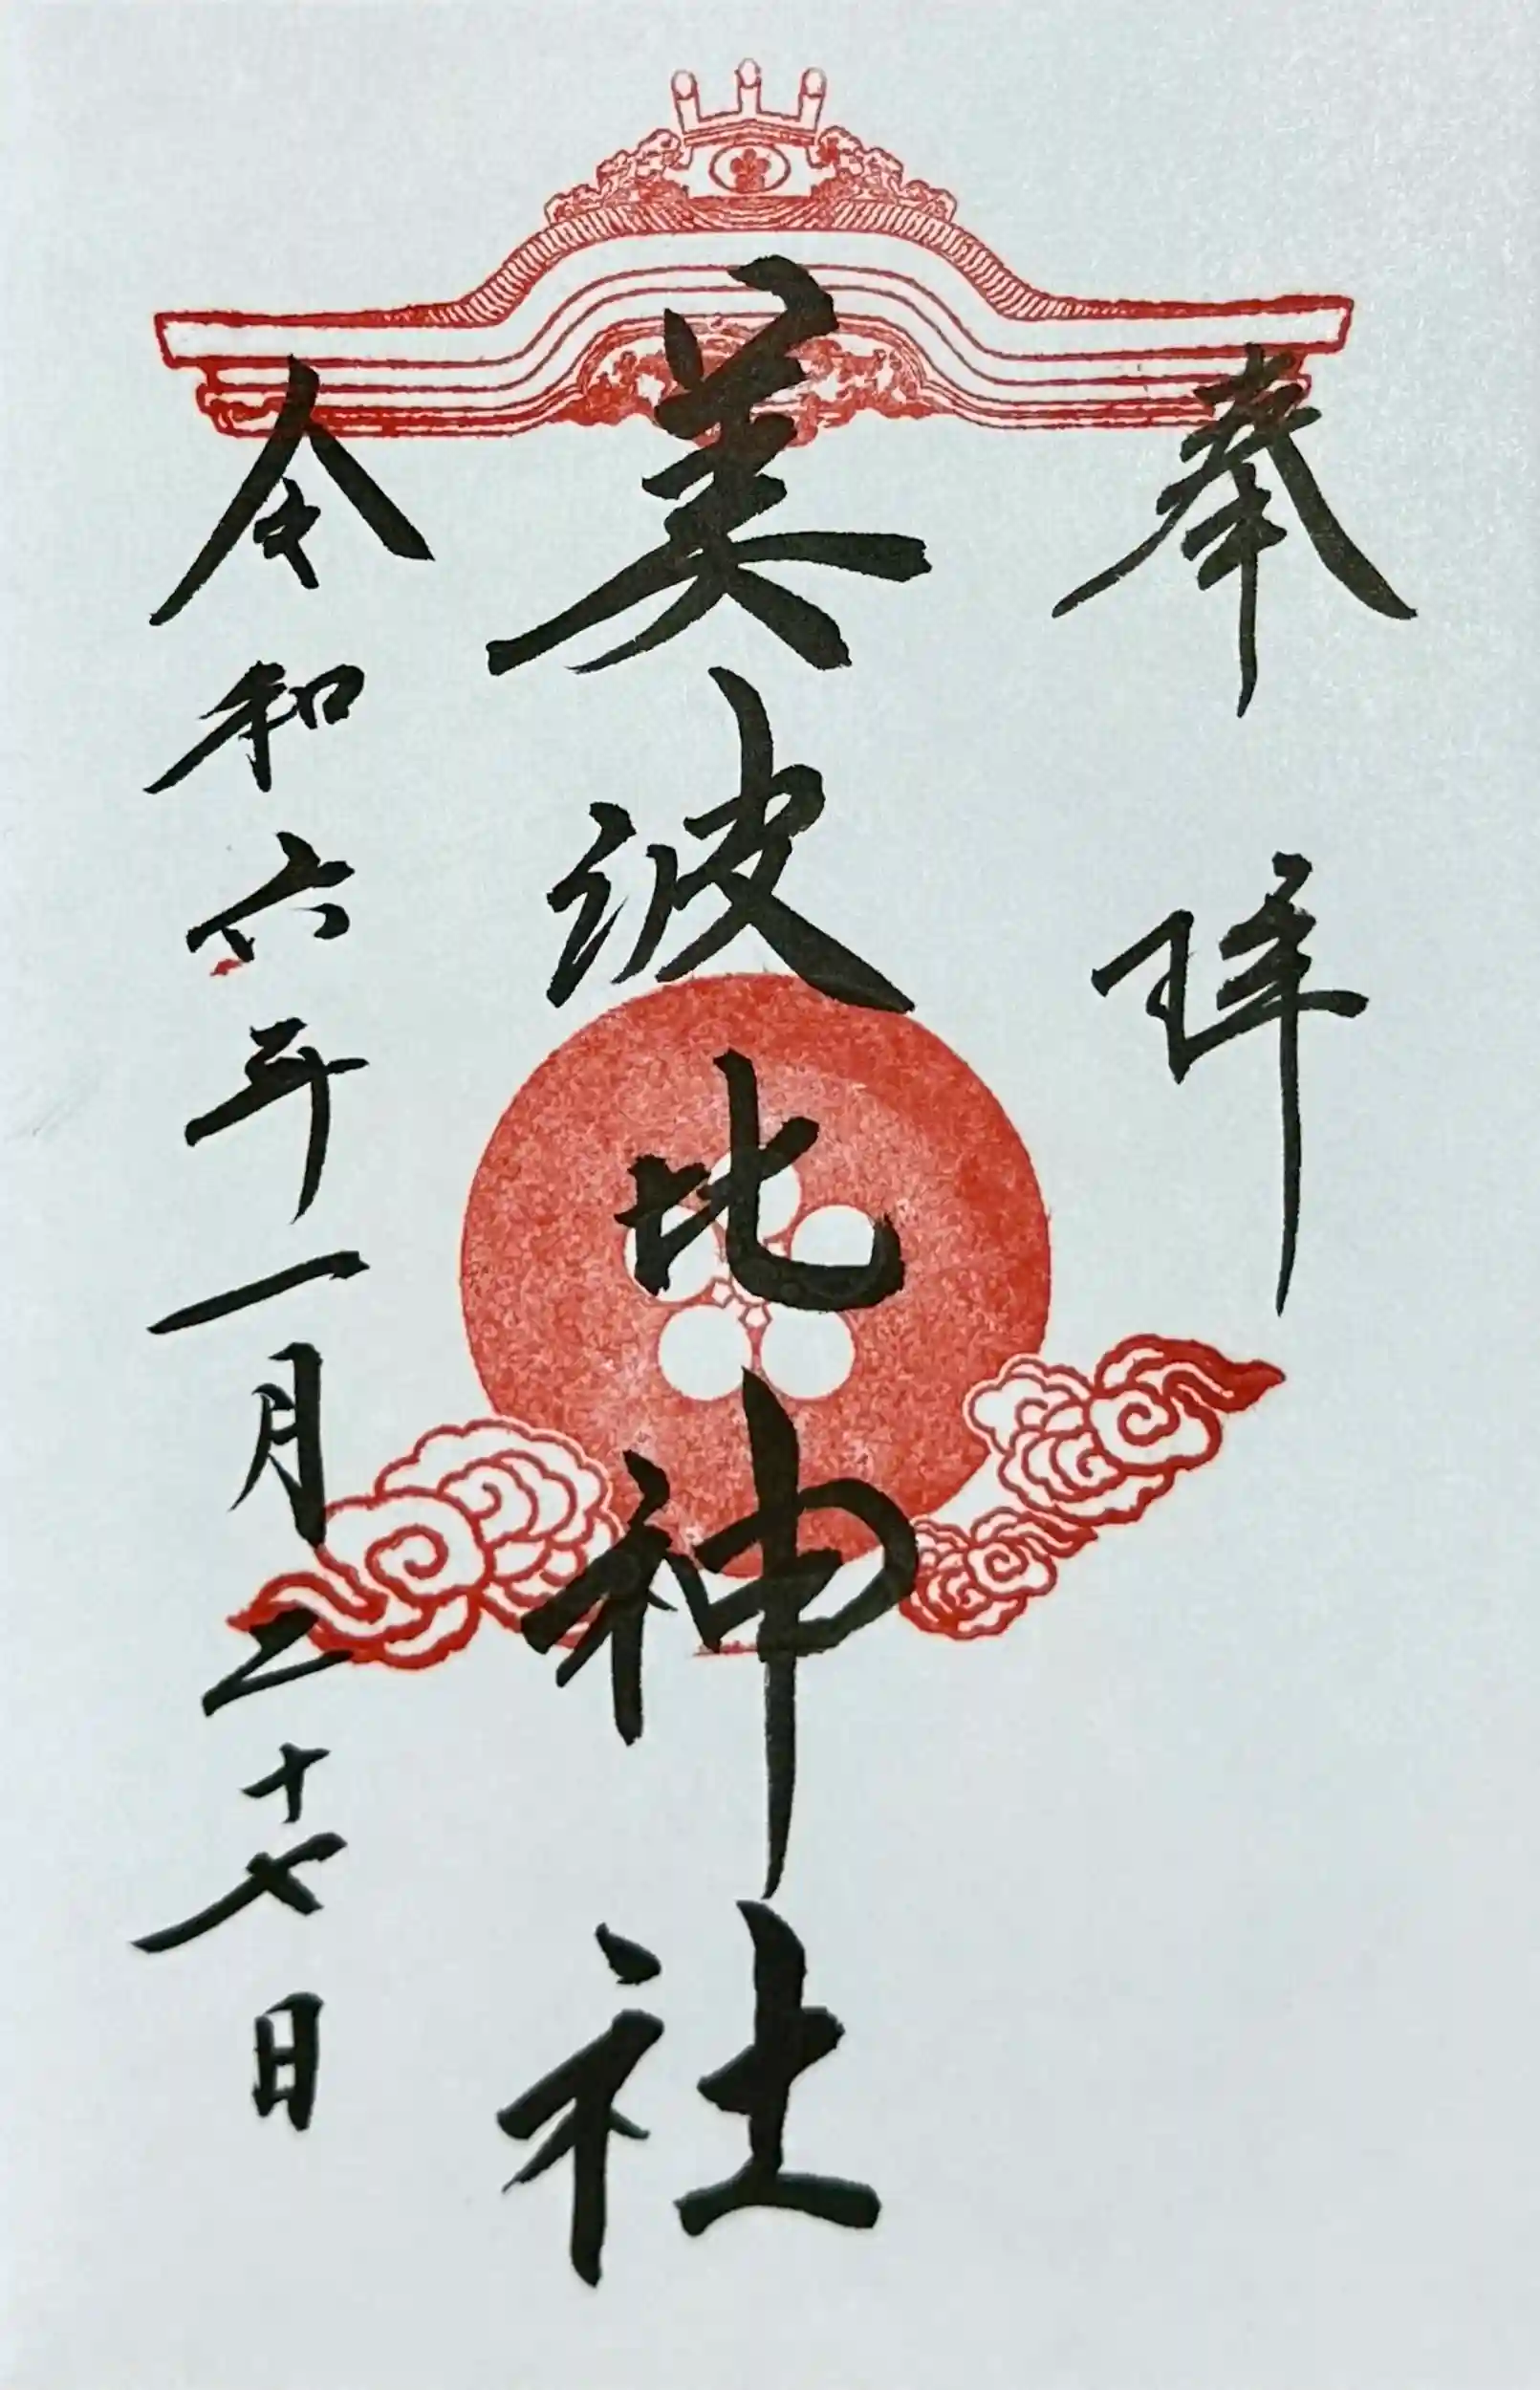 奉拝
美波比神社
令和六年一月二十七日